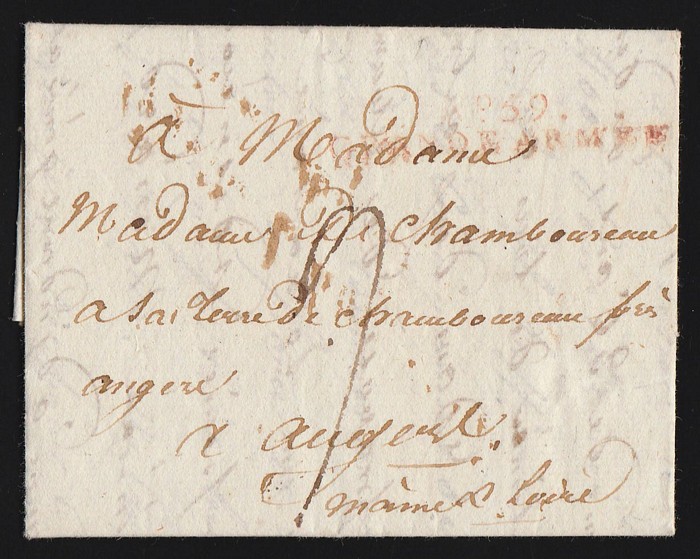 No. 39.
GRANDE ARMÉE
à Madame
Madame De chamboureau
a sa terre De chamboureau près
angers
a angers
maine & Loire